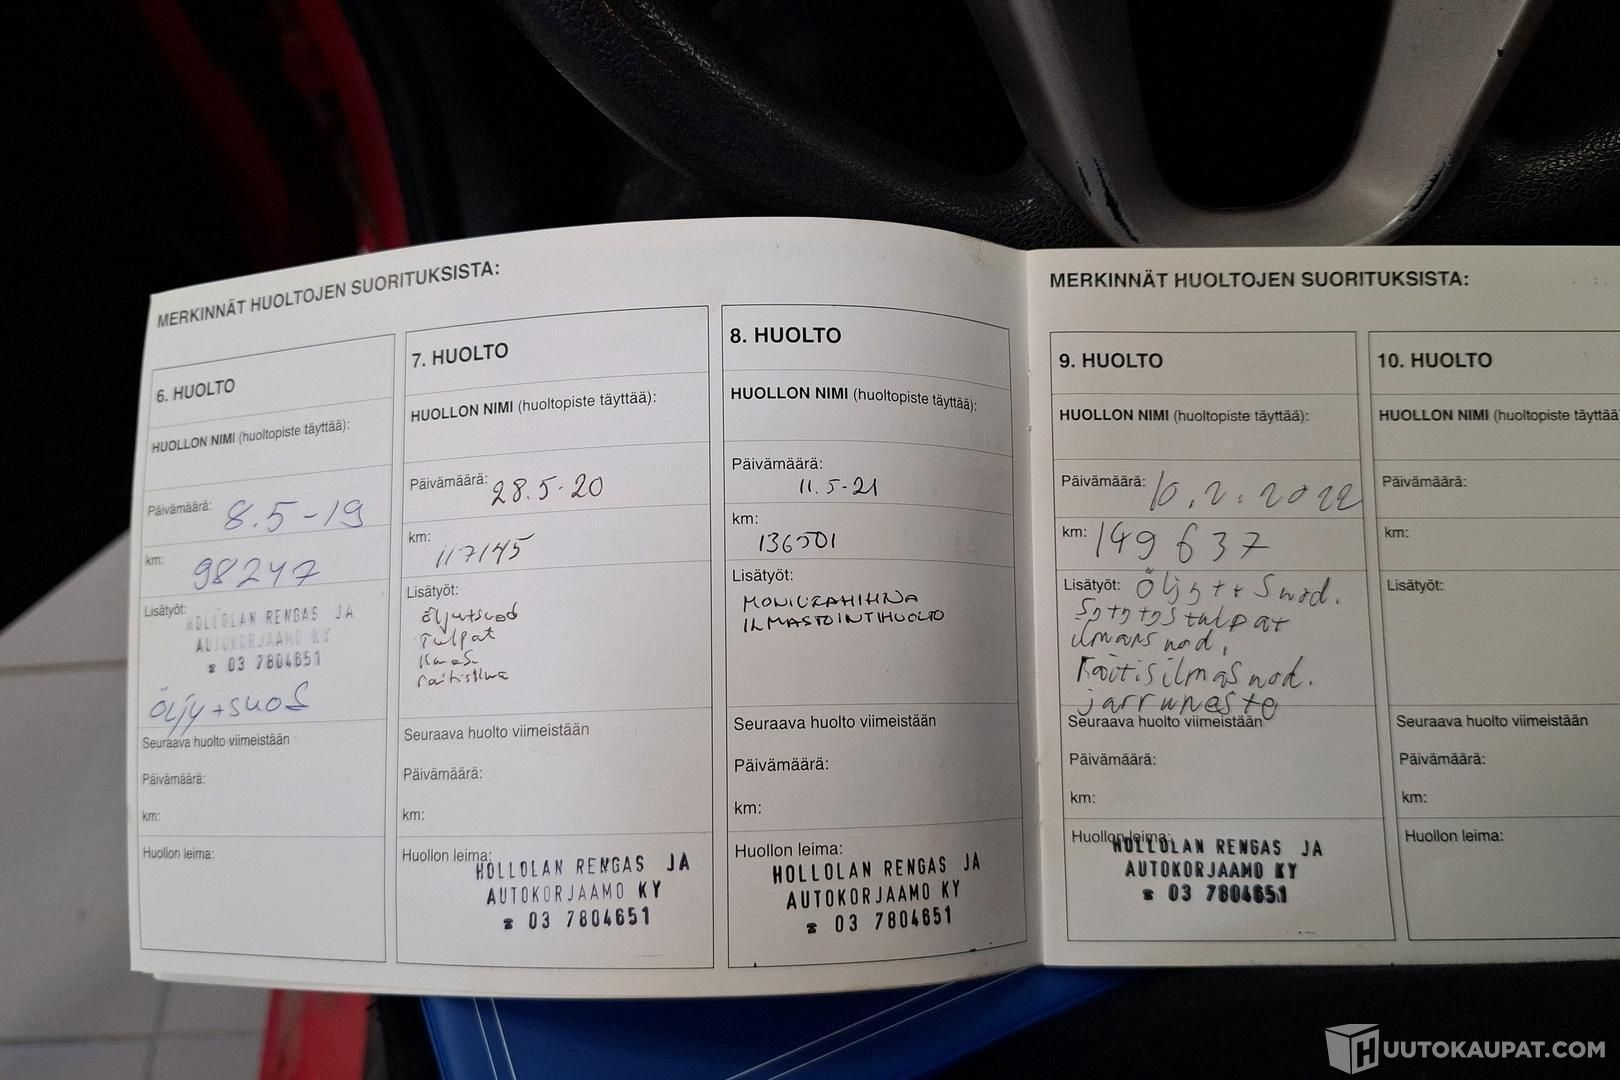 MERKINNÄT HUOLTOJEN SUORITUKSISTA:
6. HUOLTO
HUOLLON NIMI (huoltopiste täyttää):
Päivämäärä: 8.5-19
km: 98247
Lisätyöt:
HOLLOLAN RENGAS JA
AUTOKORJAAMO KY
☎ 03 7804651
Öljy+suod
Seuraava huolto viimeistään
Päivämäärä:
km:
Huollon leima:
7. HUOLTO
HUOLLON NIMI (huoltopiste täyttää):
Päivämäärä: 28.5-20
km: 117145
Lisätyöt:
öljy+suod
Tulpat
raitisilma
Seuraava huolto viimeistään
Päivämäärä:
km:
Huollon leima:
HOLLOLAN RENGAS JA
AUTOKORJAAMO KY
☎ 03 7804651
8. HUOLTO
HUOLLON NIMI (huoltopiste täyttää):
Päivämäärä:
11.5-21
km:
136501
Lisätyöt:
MONIURAHIHNA
ILMASTOINTIHUOLTO
Seuraava huolto viimeistään
Päivämäärä:
km:
Huollon leima:
HOLLOLAN RENGAS JA
AUTOKORJAAMO KY
☎ 03 7804651
MERKINNÄT HUOLTOJEN SUORITUKSISTA:
9. HUOLTO
HUOLLON NIMI (huoltopiste täyttää):
Päivämäärä: 10.2.2022
km: 149637
Lisätyöt: Öljyt+Suod.
Sytytystulpat
ilmansuod,
Raitisilmasuod.
jarruneste
Seuraava huolto viimeistään
Päivämäärä:
km:
Huollon leima:
HOLLOLAN RENGAS JA
AUTOKORJAAMO KY
☎ 03 7804651
10. HUOLTO
HUOLLON NIMI (huoltopiste täyttää
Päivämäärä:
km:
Lisätyöt:
Seuraava huolto viimeistään
Päivämäärä:
km:
Huollon leima:
HUUTOKAUPAT.COM